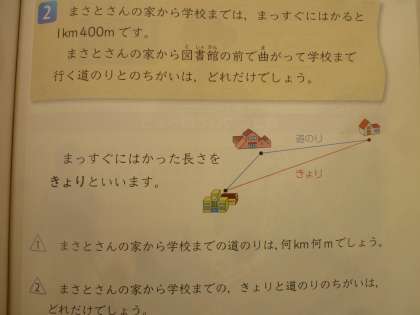 2 まさとさんの家から学校までは，まっすぐにはかると
1km400mです。
まさとさんの家から図書館の前で曲がって学校まで
行く道のりとのちがいは，どれだけでしょう。
道のり
まっすぐにはかった長さを
きょり
きょりといいます。
1 まさとさんの家から学校までの道のりは，何km何mでしょう。
2 まさとさんの家から学校までの，きょりと道のりのちがいは，
どれだけでしょう。